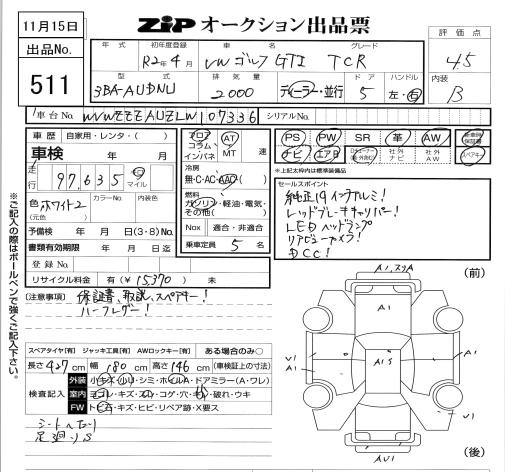 11月15日
ZiP オークション出品票
出品No.
511
年式
初年度登録
車名
グレード
評価点
R2年4月
VW ゴルフGTI TCR
4.5
型式
排気量
ドア
ハンドル
内装
3BA-AUDNU
2000
ディーラー・並行
5
左・右
B
車台No.
WVWZZZAUZLW107336
シリアルNo.
車歴
自家用・レンタ・( )
フロア
コラム
インパネ
AT
MT
速
PS
PW
SR
革
AW
ナビ
エアB
社外ナビ
社外AW
スペアキー
※上記太枠内は標準装備品
車検
年 月
冷房
無・C・AC・AAC
走行
97,635
マイル
燃料
ガソリン・軽油・電気・その他( )
色
ホワイト2
(元色)
カラーNo.
内装色
Nox
適合・非適合
予備検
年 月 日(3・8)No.
書類有効期限
年 月 日迄
乗車定員
5 名
登録No.
リサイクル料金
有(¥15370) 未
セールスポイント
純正19インチアルミ!
レッドブレーキキャリパー!
LEDヘッドランプ
リアビューカメラ!
DCC!
※ご記入の際はボールペンで強くご記入下さい。
(注意事項)
保証書、取説、スペアキー!
ハーフレザー!
スペアタイヤ[有]
ジャッキ工具[有]
AWロックキー[有]
ある場合のみ○
長さ427cm
幅180cm
高さ146cm
(車検証上の寸法)
検査記入
外装
小キズ・小リ・シミ・ホイルA・ドアミラー(A・ワレ)
室内
ヨゴレ・キズ・スレ・コゲ・穴・キレ・破れ・ウキ
FW
トビ石・キズ・ヒビ・リペア跡・X要ス
シートヘタリ
足廻りS
(前)
A1、スリA
A1
V1
A1
A1S
A1
V1
AU1
(後)